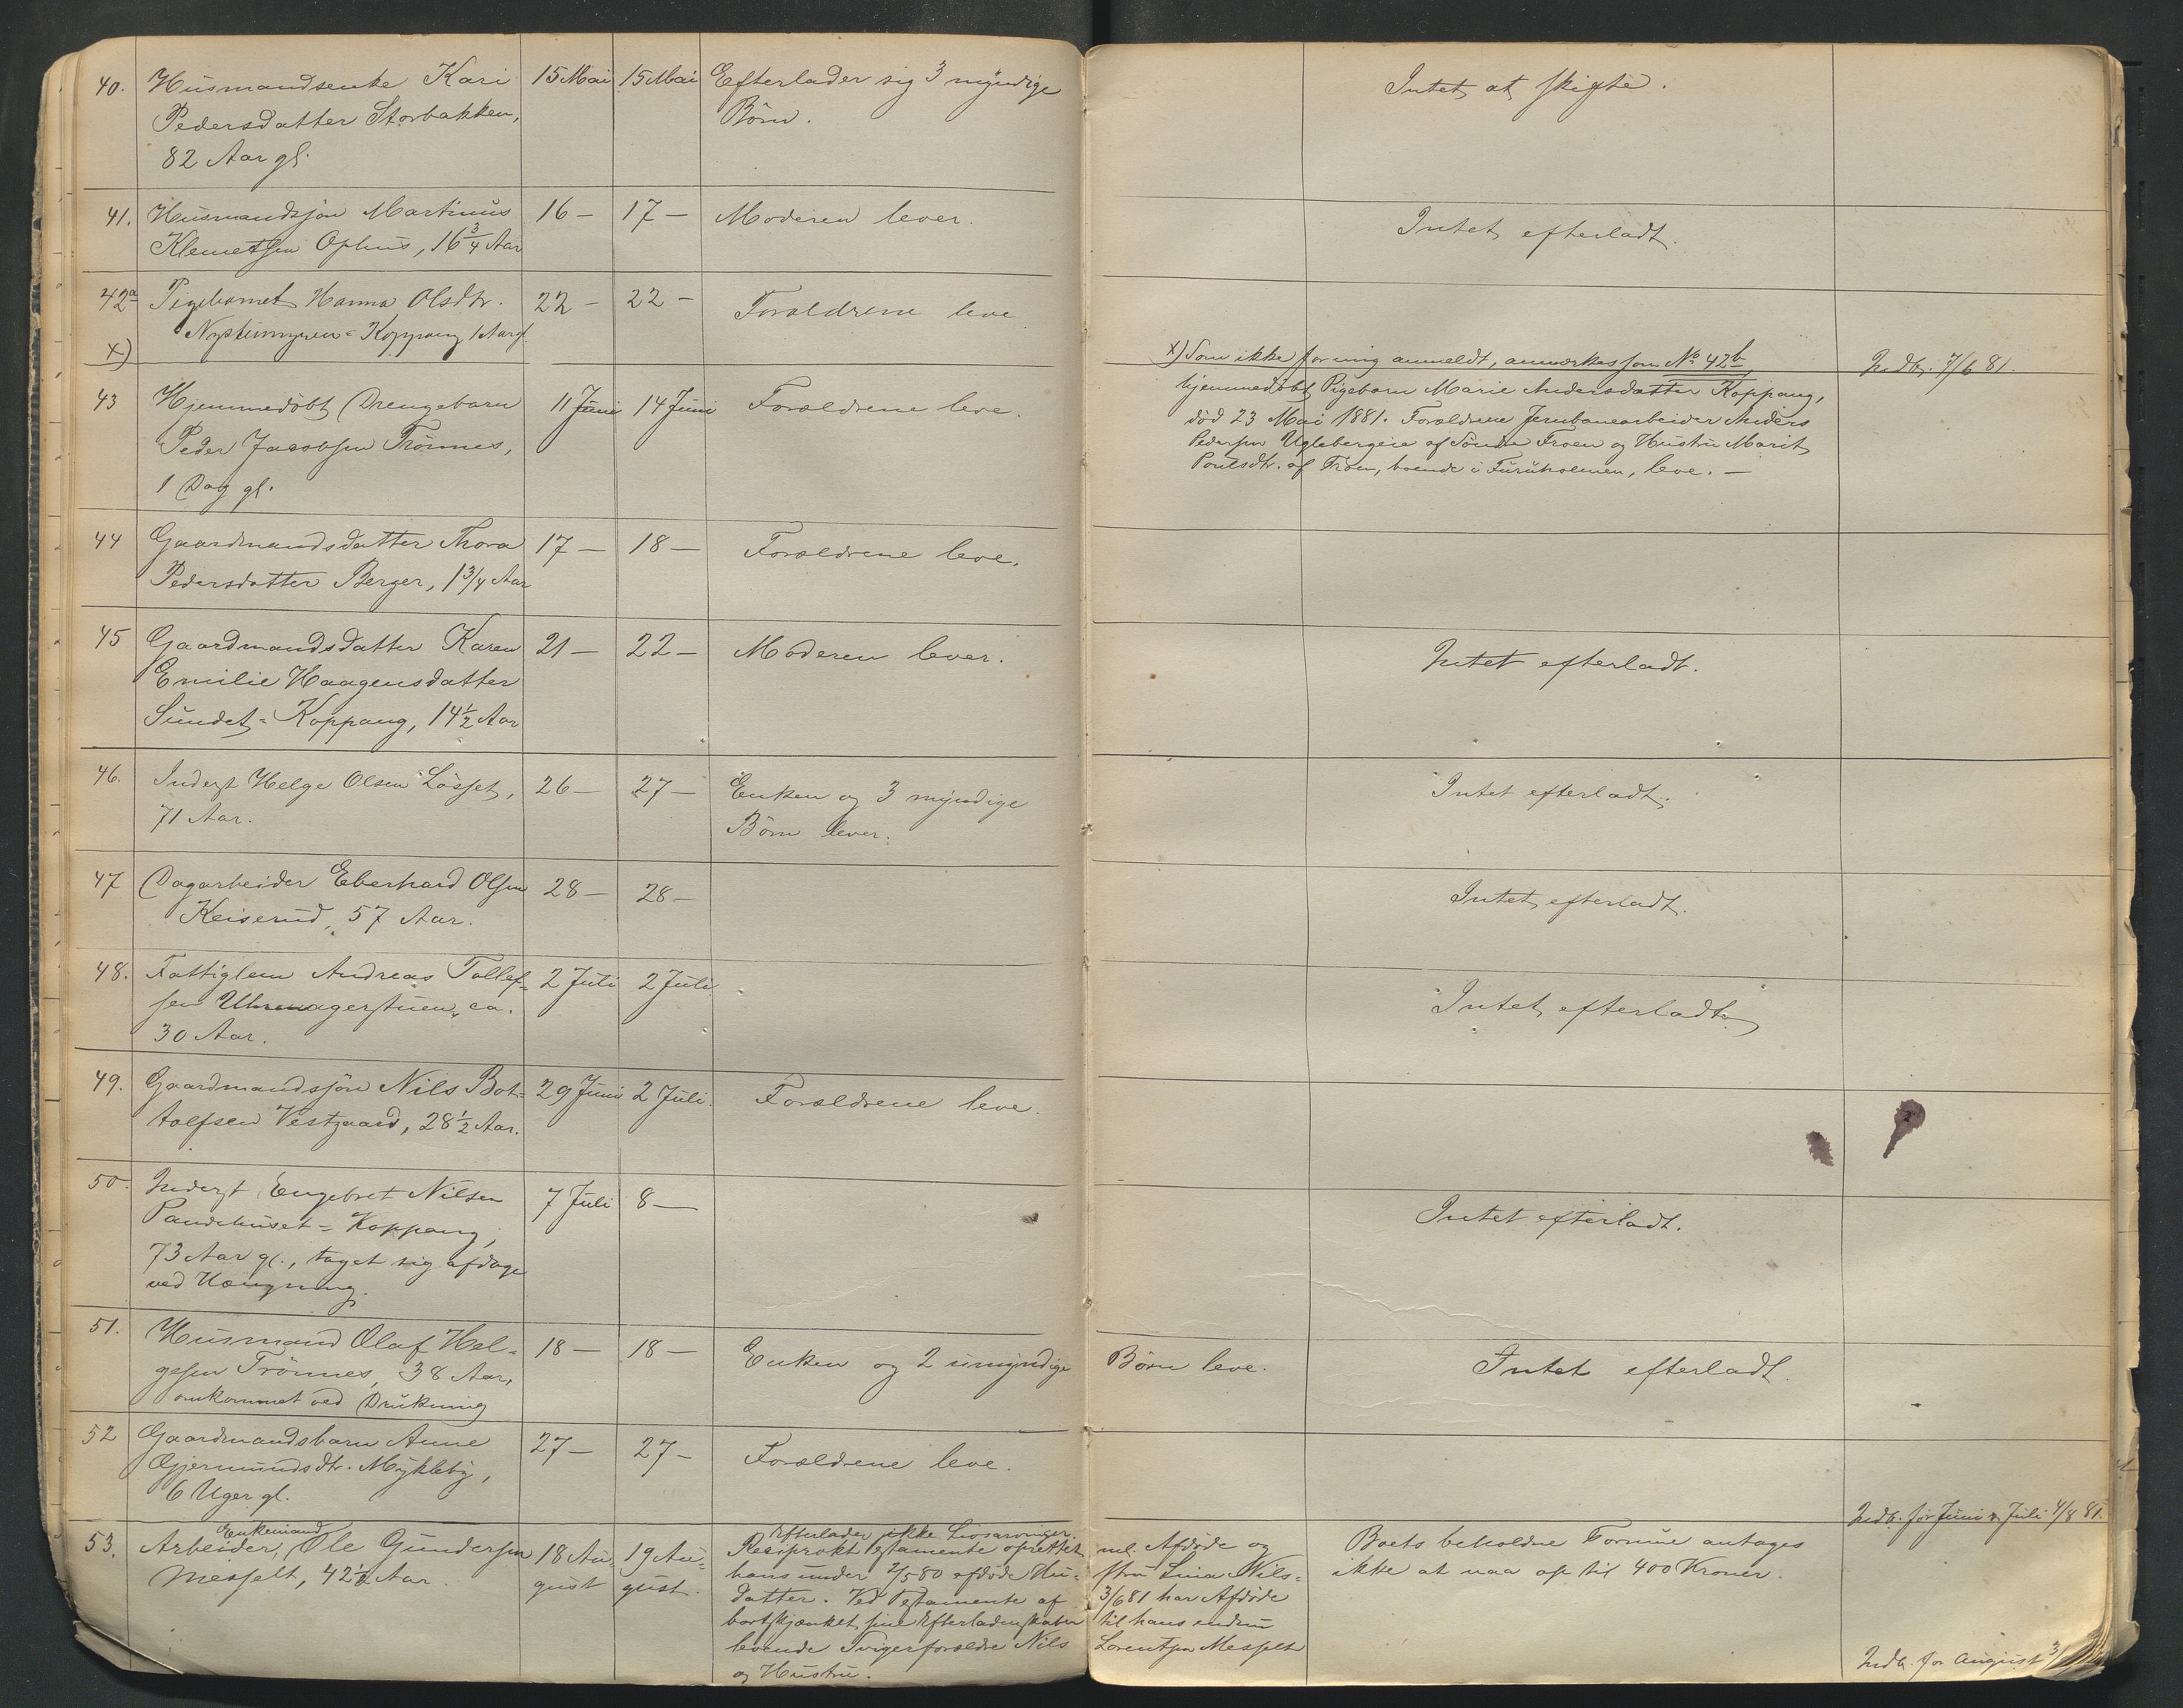 40. Husmandsenke Kari 15 Mai 15 Mai Efterlader sig 3 myndige Intet at skifte.
Pedersdatter Storbakken, Börn.
82 Aar gl.
41. Husmandssön Martinus 16 – 17 – Moderen lever. Intet efterladt.
Klemetsen Ophus, 16 3/4 Aar
42a Pigebarnet Hanna Olsdtr. 22 – 22 – Forældrene leve
Nysteimyren = Koppang 1 Aar gl.
x)
x) Som ikke for mig anmeldt, anmærkes som No 42b, Indb. 7/6 81.
hjemmedöbt Pigebarn Marie Andersdatter Koppang,
död 23 Mai 1881. Forældrene Jernbanearbeider Anders
Pedersen Uglebergeie af Söndre Troen og Hustru Marit
Poulsdtr. af Troen, boende i Furuholmen, leve. –
43 Hjemmedöbt Drengebarn 11 Juni 14 Juni Forældrene leve.
Peder Jacobsen Trönnes,
1 Dag gl.
44 Gaardmandsdatter Thora 17 – 18 – Forældrene leve.
Pedersdatter Berger, 1 3/4 Aar
45 Gaardmandsdatter Karen 21 – 22 – Moderen lever. Intet efterladt.
Emilie Haagensdatter
Sundet = Koppang, 14 1/2 Aar
46. Inderst Helge Olsen Lösset, 26 – 27 – Enken og 3 myndige Intet efterladt.
71 Aar. Börn lever.
47 Dagarbeider Eberhard Olsen 28 – 28 – Intet efterladt.
Keiserud, 57 Aar.
48. Fattiglem Andreas Tollef= 2 Juli 2 Juli Intet efterladt
sen Uhrenagerstuen, ca.
30 Aar.
49. Gaardmandssön Nils Bot= 29 Juni 2 Juli. Forældrene leve.
tolfsen Vestgaard, 28 1/2 Aar.
50. Inderst Engebret Nilsen 7 Juli 8 – Intet efterladt.
Pandehuset = Koppang,
73 Aar gl., taget sig afdage
ved Hængning.
51. Husmand Olaf Hel= 18 – 18 – Enken og 2 umyndige Börn leve. Intet efterladt.
gesen Trönnes, 38 Aar,
omkommet ved Drukning
52 Gaardmandsbarn Anne 27 – 27 – Forældrene leve.
Gjermundsdtr. Mykleby,
6 Uger gl.
Indb. for Juni & Juli 4/8 81.
Enkemand Efterlader ikke Livsarvinger.
53. Arbeider, Ole Gundersen 18 Au= 19 Au= Reciprokt Testamente oprettet mel. Afdöde og Boets beholdne Formue antages
Messelt, 42 1/2 Aar. gust gust. hans under 2/5 80 afdöde Hu= stru Lina Nils= ikke at naa op til 400 Kroner.
datter. Ved Testamente af 3/6 81 har Afdöde
bortskjænket sine Efterladenskaber til hans endnu
levende Svigerforældre Nils Lorentsen Messelt
og Hustru.
Indb. for August 3/